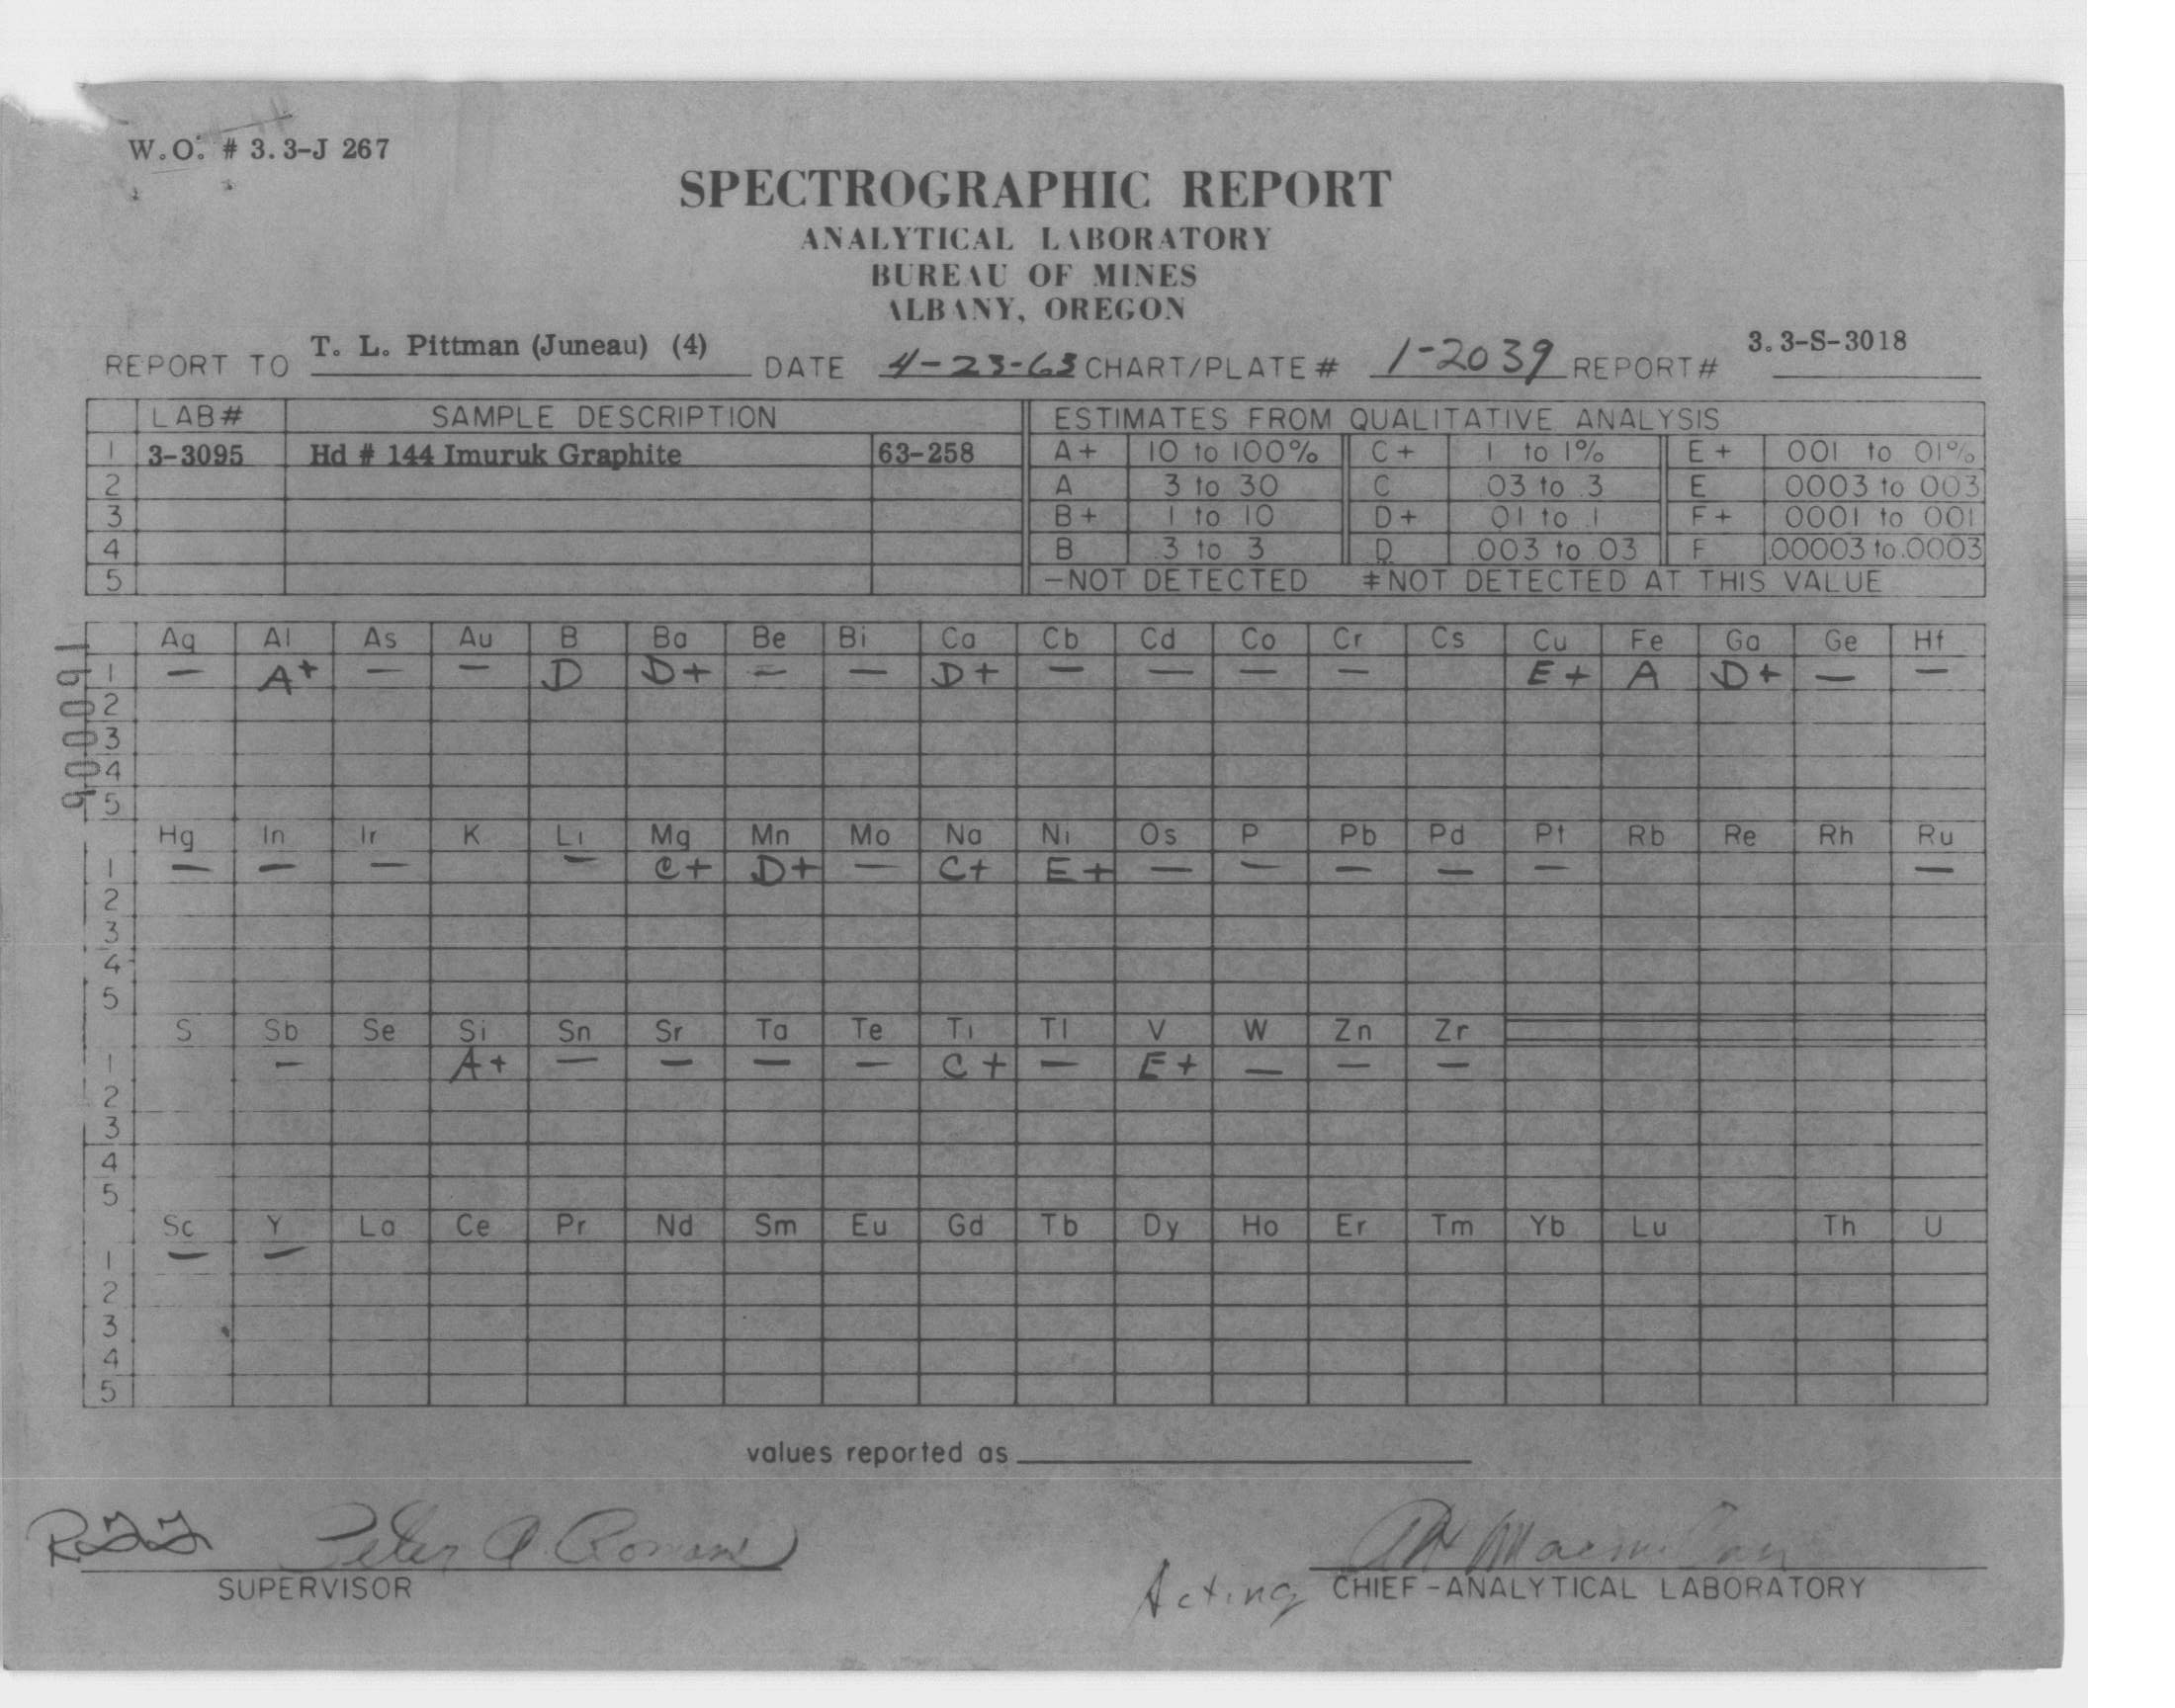 W.O. # 3.3-J 267
SPECTROGRAPHIC REPORT
ANALYTICAL LABORATORY
BUREAU OF MINES
ALBANY, OREGON
REPORT TO T. L. Pittman (Juneau) (4) DATE 4-23-63 CHART/PLATE # 1-2039 REPORT # 3.3-S-3018
LAB# SAMPLE DESCRIPTION ESTIMATES FROM QUALITATIVE ANALYSIS
1 3-3095 Hd # 144 Imuruk Graphite 63-258 A+ 10 to 100% C+ 1 to 1% E+ 001 to 01%
2 A 3 to 30 C 03 to .3 E 0003 to 003
3 B+ 1 to 10 D+ 01 to .1 F+ 0001 to 001
4 B .3 to 3 D .003 to 03 F .00003 to .0003
5 — NOT DETECTED ≠ NOT DETECTED AT THIS VALUE
Ag Al As Au B Ba Be Bi Ca Cb Cd Co Cr Cs Cu Fe Ga Ge Hf
1 — A+ — — D D+ — — D+ — — — — E+ A D+ — —
2
3
4
5
160006
Hg In Ir K Li Mg Mn Mo Na Ni Os P Pb Pd Pt Rb Re Rh Ru
1 — — — — C+ D+ — C+ E+ — — — — — —
2
3
4
5
S Sb Se Si Sn Sr Ta Te Ti Tl V W Zn Zr
1 — A+ — — — — C+ — E+ — — —
2
3
4
5
Sc Y La Ce Pr Nd Sm Eu Gd Tb Dy Ho Er Tm Yb Lu Th U
1 — —
2
3
4
5
values reported as
Peter A. Romans
SUPERVISOR
Acting CHIEF-ANALYTICAL LABORATORY